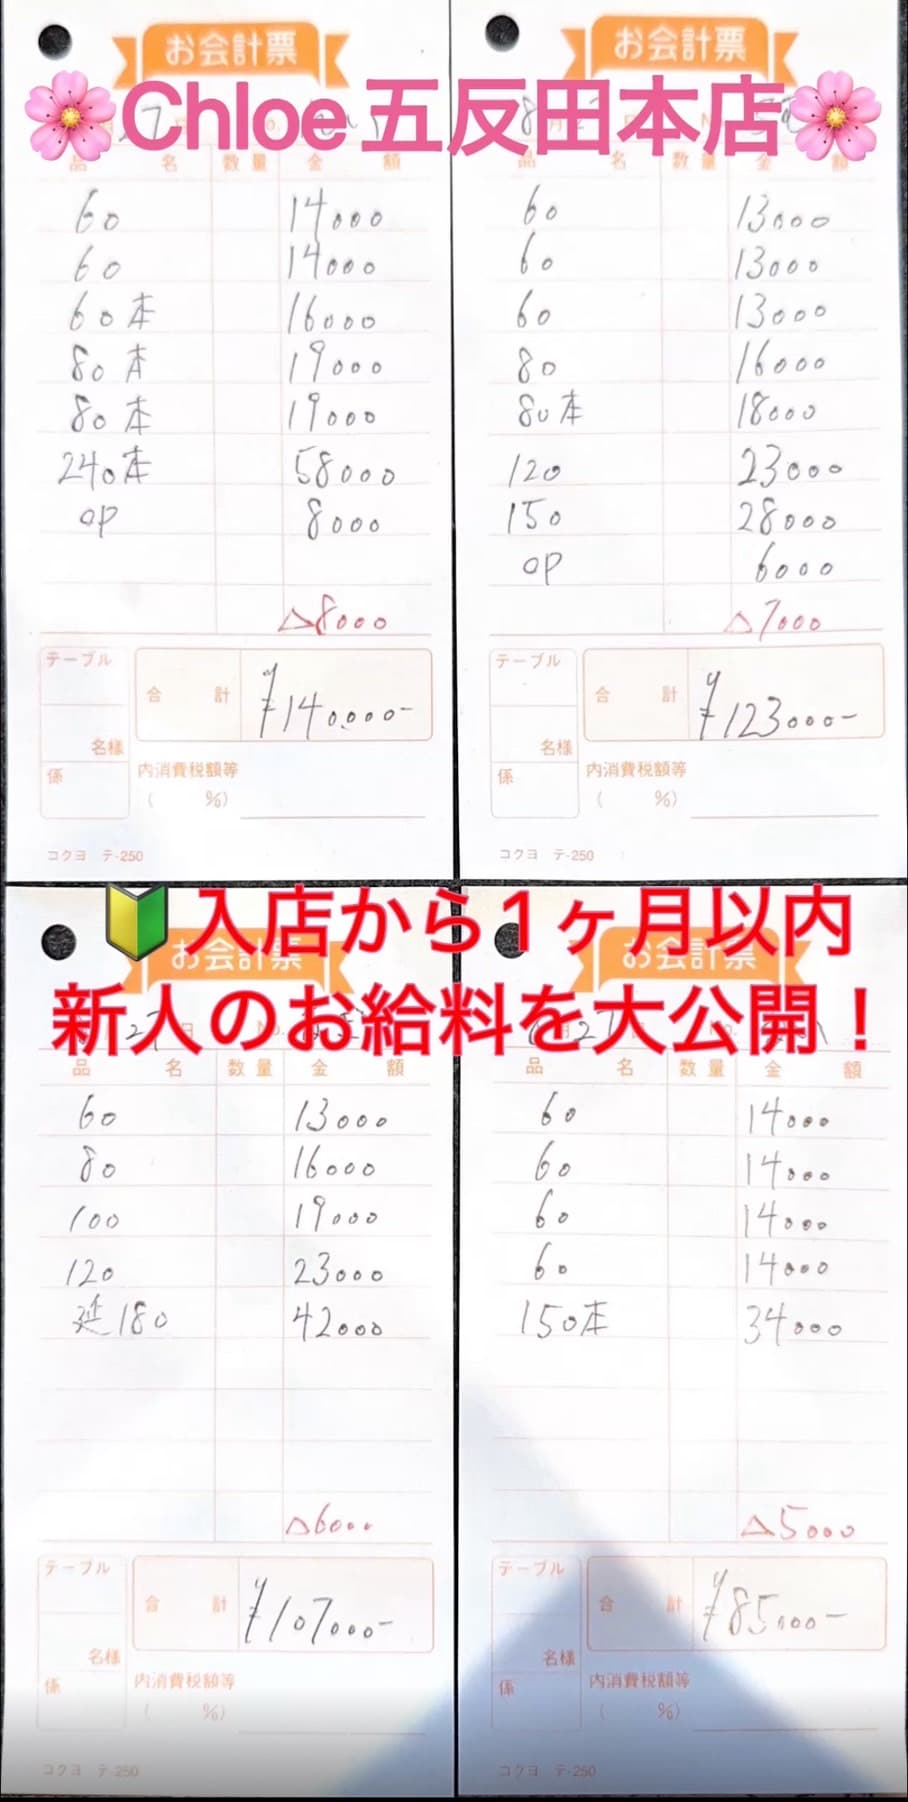 お会計票
お会計票
🌸Chloe 五反田本店🌸
品 名 数量 金 額
60 14000
60 14000
60本 16000
80本 19000
80本 19000
240本 58000
OP 8000
△8000
テーブル
合 計 ¥140,000-
名様
係
内消費税額等
( %)
コクヨ テ-250
品 名 数量 金 額
60 13000
60 13000
60 13000
80 16000
80本 18000
120 23000
150 28000
OP 6000
△7000
テーブル
合 計 ¥123000-
名様
係
内消費税額等
( %)
コクヨ テ-250
🔰入店から1ヶ月以内
新人のお給料を大公開！
お会計票
お会計票
品 名 数量 金 額
60 13000
80 16000
100 19000
120 23000
延180 42000
△6000
テーブル
合 計 ¥107000-
名様
係
内消費税額等
( %)
コクヨ テ-250
品 名 数量 金 額
60 14000
60 14000
60 14000
60 14000
150本 34000
△5000
テーブル
合 計 ¥85000-
名様
係
内消費税額等
( %)
コクヨ テ-250